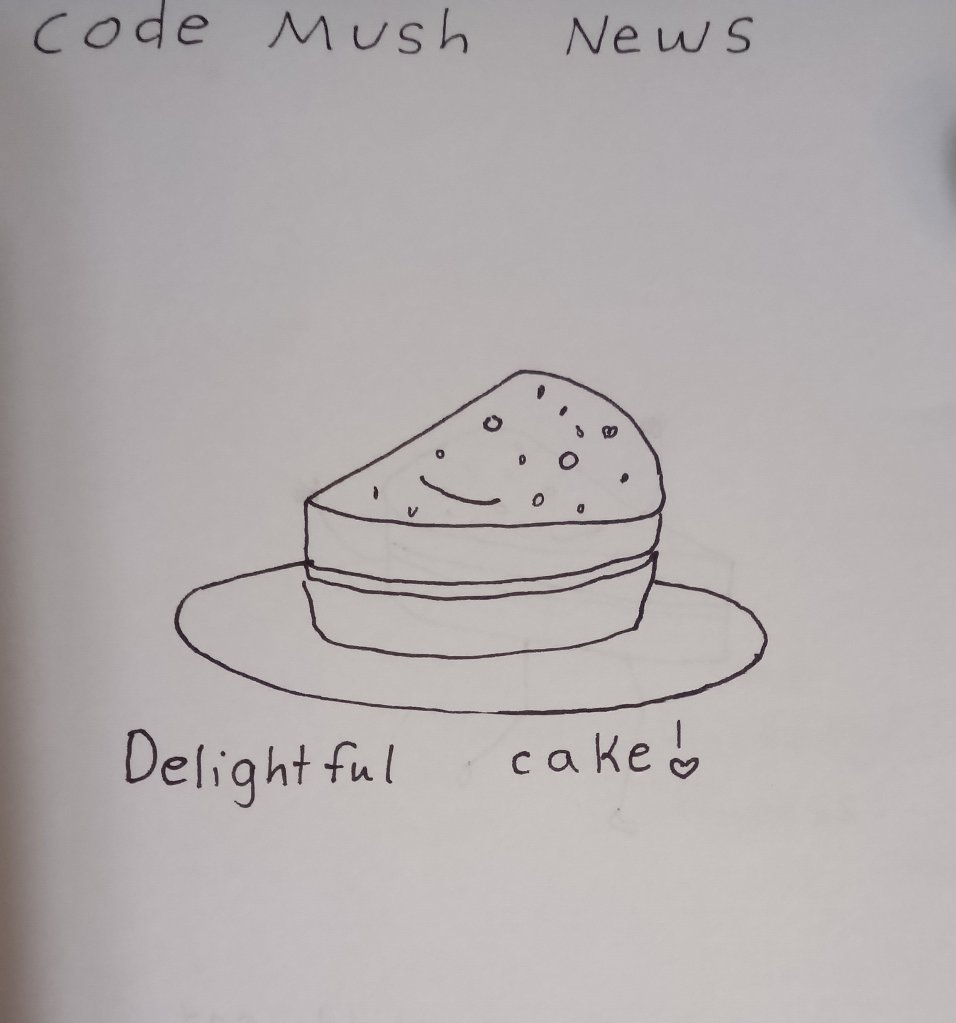 Code Mush News
Delightful cake!